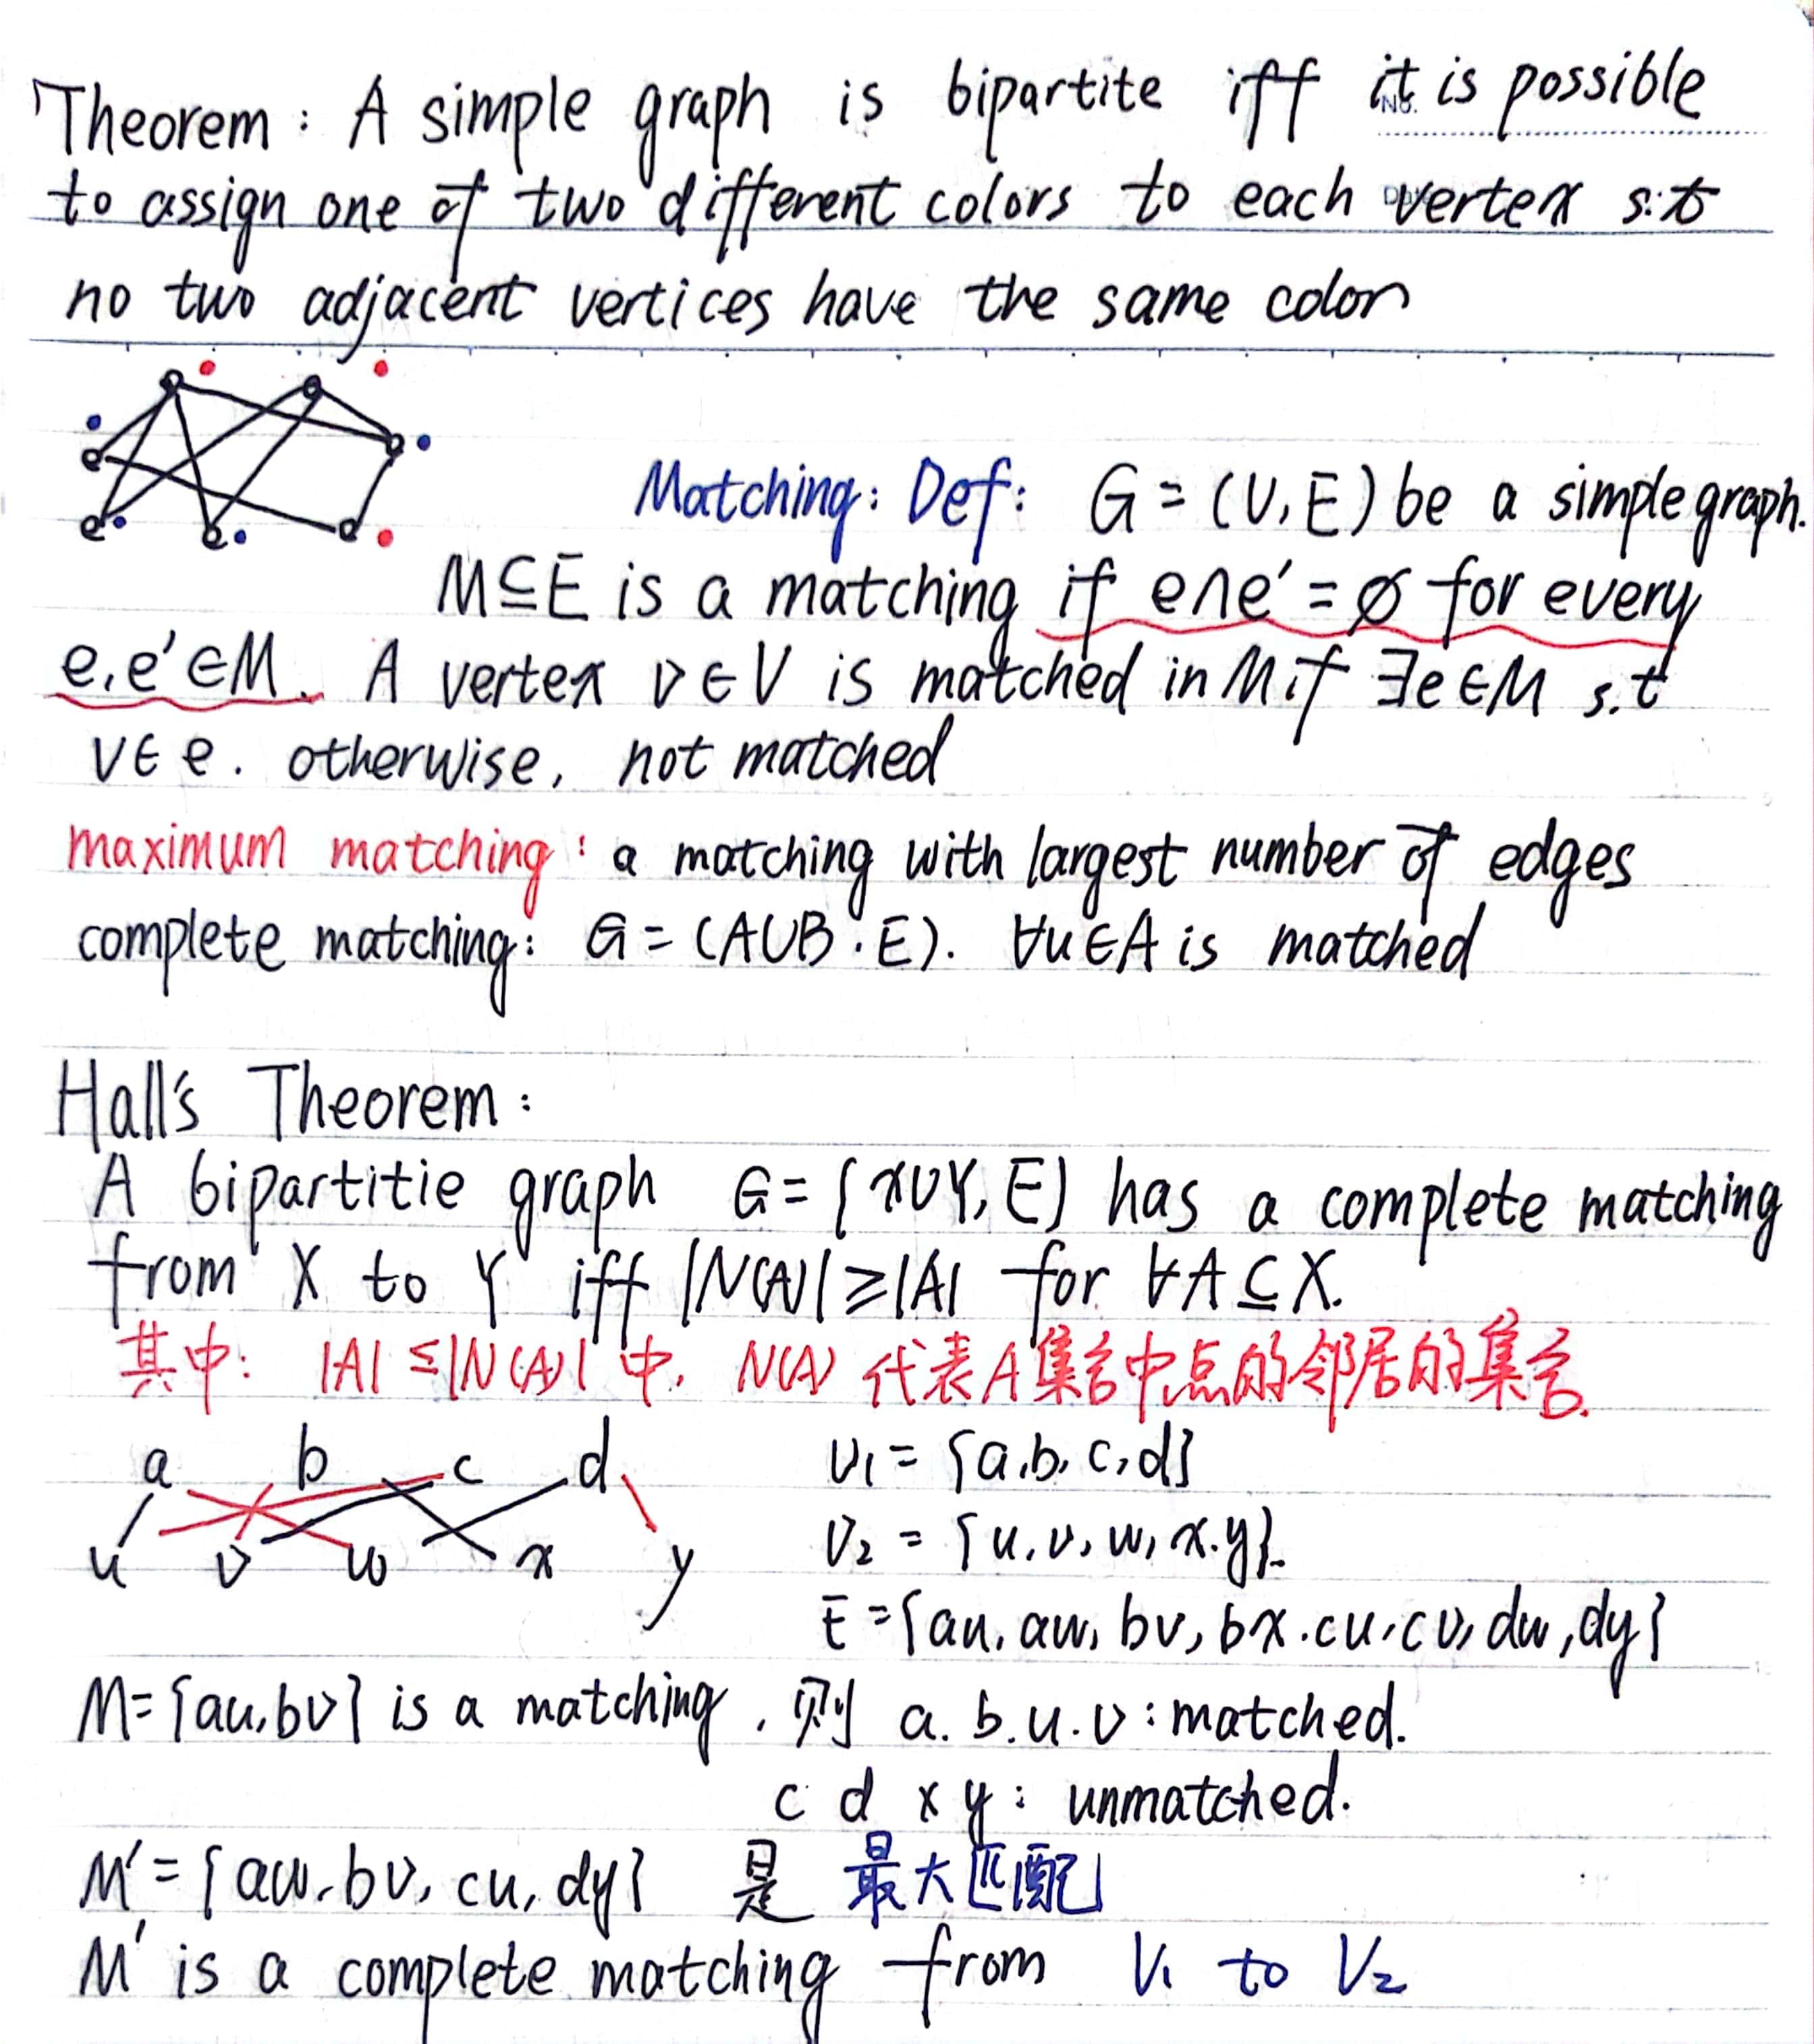 Theorem : A simple graph is bipartite iff it is possible
to assign one of two different colors to each vertex s.t
no two adjacent vertices have the same color
Matching: Def: G = (V, E) be a simple graph.
M⊆E is a matching if e∩e' = ∅ for every
e, e' ∈M. A vertex v∈V is matched in M if ∃e∈M s.t
v∈e. otherwise, not matched
maximum matching: a matching with largest number of edges
complete matching: G = (A∪B, E). ∀u∈A is matched
Hall's Theorem:
A bipartitie graph G = {X∪Y, E} has a complete matching
from X to Y iff |N(A)| ≥ |A| for ∀A⊆X.
其中: |A| ≤ |N(A)| 中, N(A) 代表A集合中点的邻居的集合.
a b c d
u v w x y
V₁ = {a, b, c, d}
V₂ = {u, v, w, x, y}.
E = {au, aw, bv, bx, cu, cv, dw, dy}
M = {au, bv} is a matching, 则 a. b. u. v : matched.
c d x y : unmatched.
M' = {aw, bv, cu, dy} 是 最大匹配
M' is a complete matching from V₁ to V₂